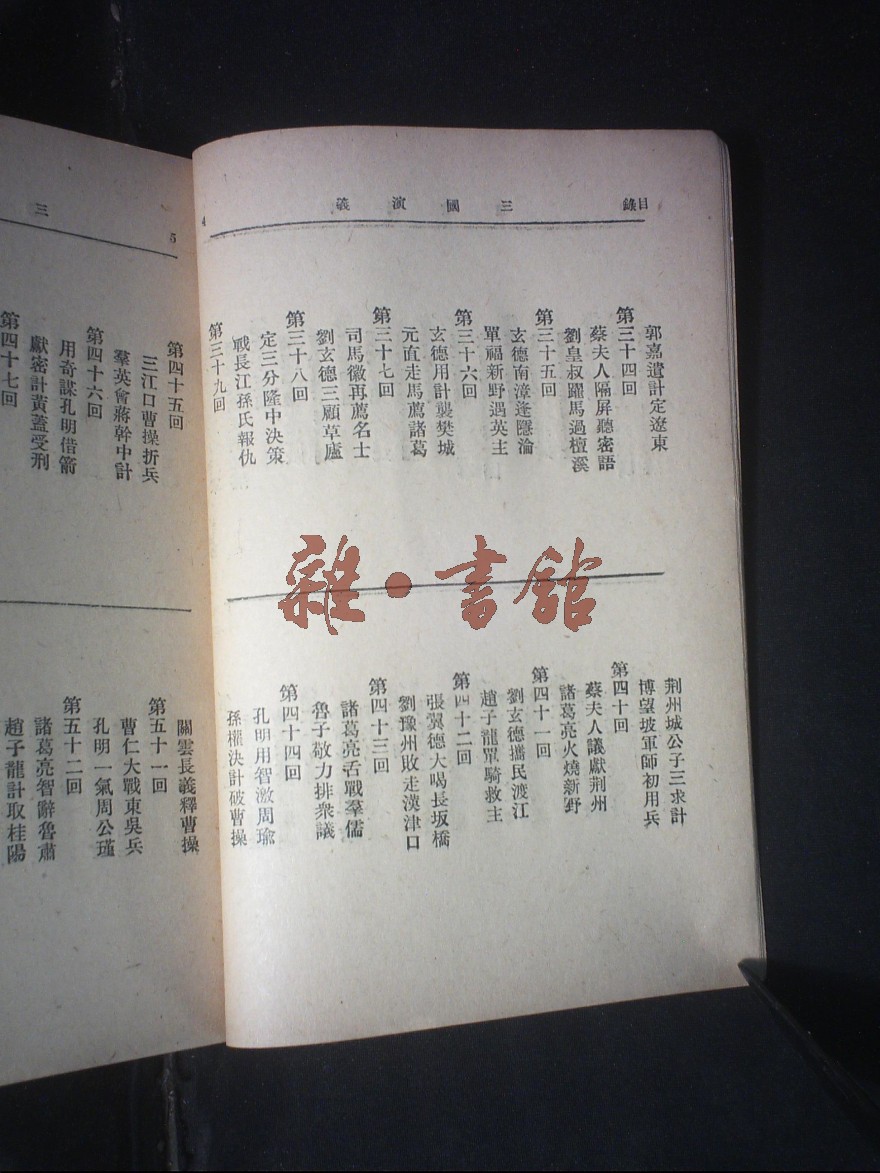 目錄
三國演義
4
郭嘉遺計定遼東
第三十四回
蔡夫人隔屏聽密語
劉皇叔躍馬過檀溪
第三十五回
玄德南漳逢隱淪
單福新野遇英主
第三十六回
玄德用計襲樊城
元直走馬薦諸葛
第三十七回
司馬徽再薦名士
劉玄德三顧草廬
第三十八回
定三分隆中決策
戰長江孫氏報仇
第三十九回
荊州城公子三求計
博望坡軍師初用兵
第四十回
蔡夫人議獻荊州
諸葛亮火燒新野
第四十一回
劉玄德攜民渡江
趙子龍單騎救主
第四十二回
張翼德大喝長坂橋
劉豫州敗走漢津口
第四十三回
諸葛亮舌戰羣儒
魯子敬力排衆議
第四十四回
孔明用智激周瑜
孫權決計破曹操
三
5
第四十五回
三江口曹操折兵
羣英會蔣幹中計
第四十六回
用奇謀孔明借箭
獻密計黃蓋受刑
第四十七回
關雲長義釋曹操
第五十一回
曹仁大戰東吳兵
孔明一氣周公瑾
第五十二回
諸葛亮智辭魯肅
趙子龍計取桂陽
雜·書館